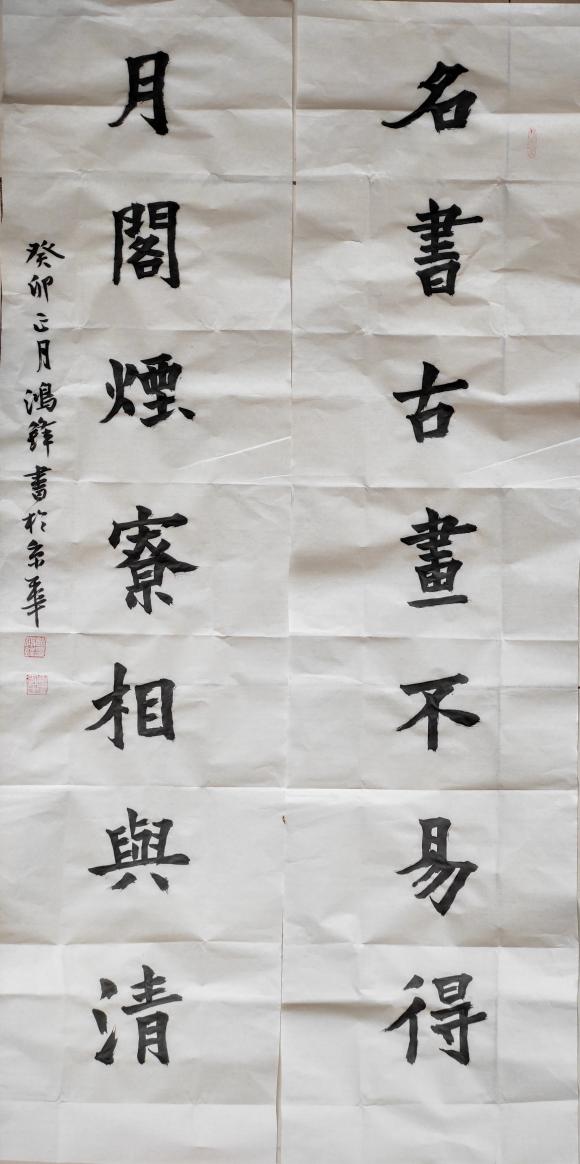 名書古畫不易得
月閣煙寮相與清
癸卯正月鴻鋒書於京華